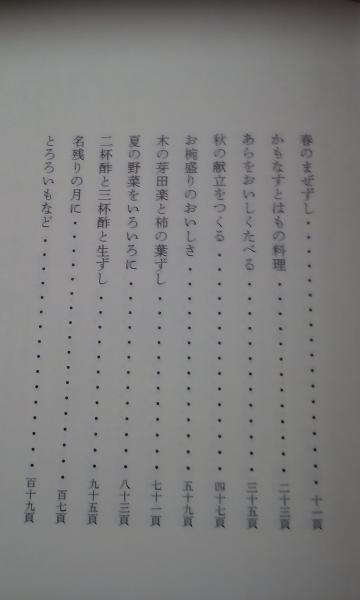 春のまぜずし・・・・・・・・・・・・・・・・・十一頁
かもなすとはもの料理・・・・・・・・・・・・・二十三頁
あらをおいしくたべる・・・・・・・・・・・・・三十五頁
秋の献立をつくる・・・・・・・・・・・・・・・四十七頁
お椀盛りのおいしさ・・・・・・・・・・・・・・五十九頁
木の芽田楽と柿の葉ずし・・・・・・・・・・・・七十一頁
夏の野菜をいろいろに・・・・・・・・・・・・・八十三頁
二杯酢と三杯酢と生ずし・・・・・・・・・・・・九十五頁
名残りの月に・・・・・・・・・・・・・・・・・百七頁
とろろいもなど・・・・・・・・・・・・・・・・百十九頁